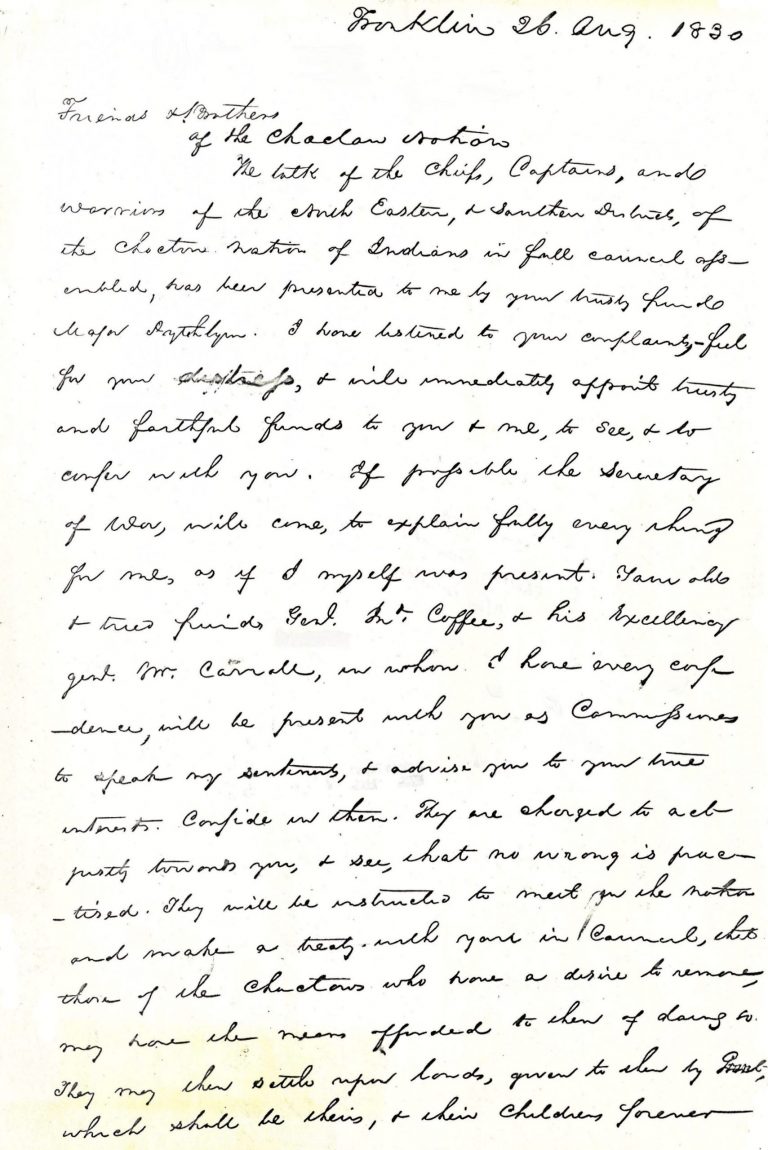 Franklin 26. Aug. 1830
Friends & Brothers
of the Choctaw Nation
The talk of the Chiefs, Captains, and
warriors of the North Eastern, & Southern Districts, of
the Choctaw Nation of Indians in full council ass-
embled, has been presented to me by your trusty friend
Major . I have listened to your complaints, - feel
for your distress, & will immediately appoint trusty
and faithful friends to you & me, to see, & to
confer with you. If possible the Secretary
of War, will come, to explain fully every thing
for me, as if I myself was present. Your old
& tried friends Genl. Jno. Coffee, & his Excellency
genl. Wm. Carroll, in whom I have every confi
-dence, will be present with you as Commissioners
to speak my sentiments, & advise you to your true
interests. Confide in them. They are charged to act
justly towards you, & see, that no wrong is prac-
-tised. They will be instructed to meet in the nation
and make a treaty with you in Council, that
those of the Choctaws who have a desire to remove,
may have the means afforded to them of doing so.
They may then settle upon lands, given to them by Grant,
which shall be theirs, & their Childrens forever